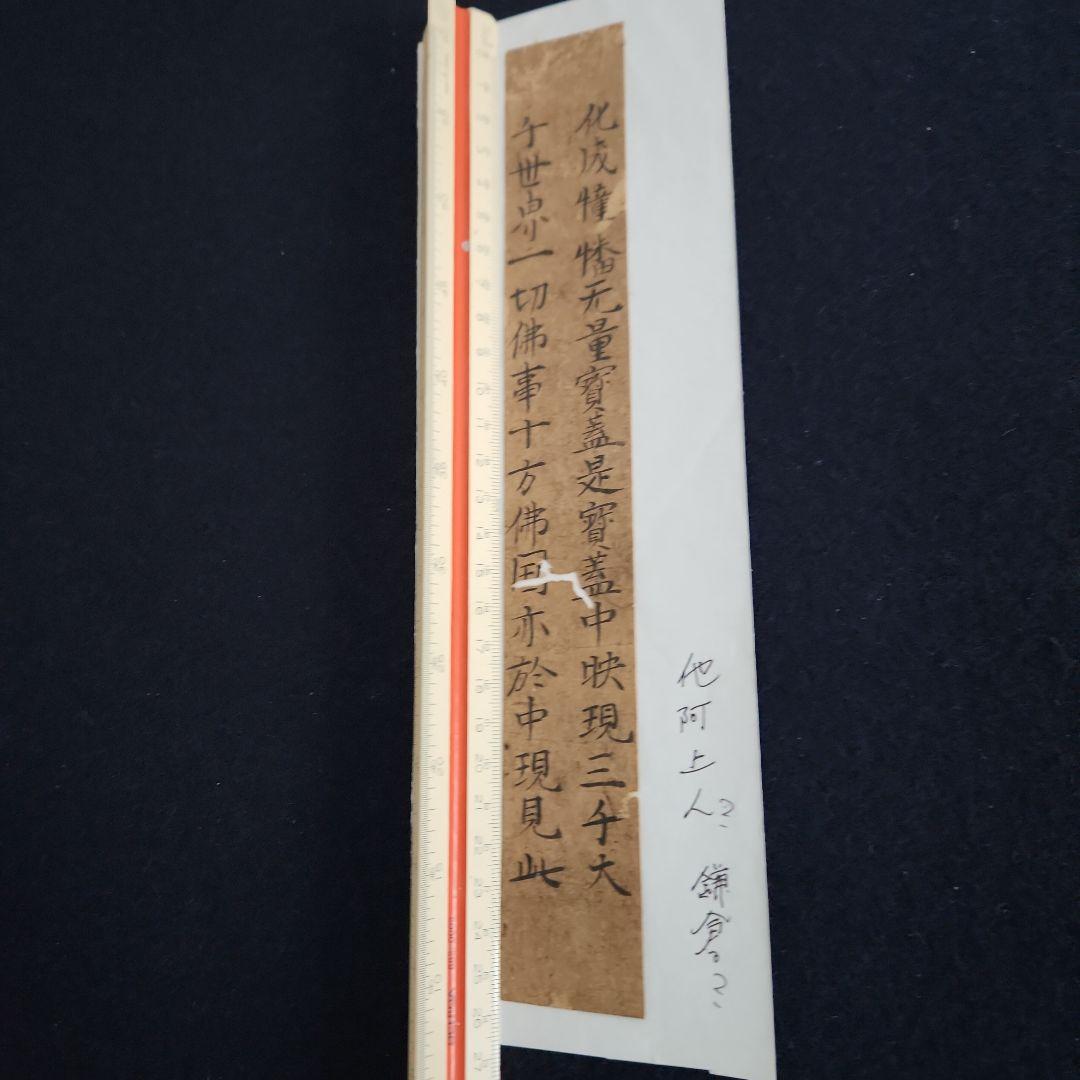 化成憧憣无量寳盖是寳盖中映現三千大
千世界一切佛事十方佛国亦於中現見此
他阿上人?
鎌倉?